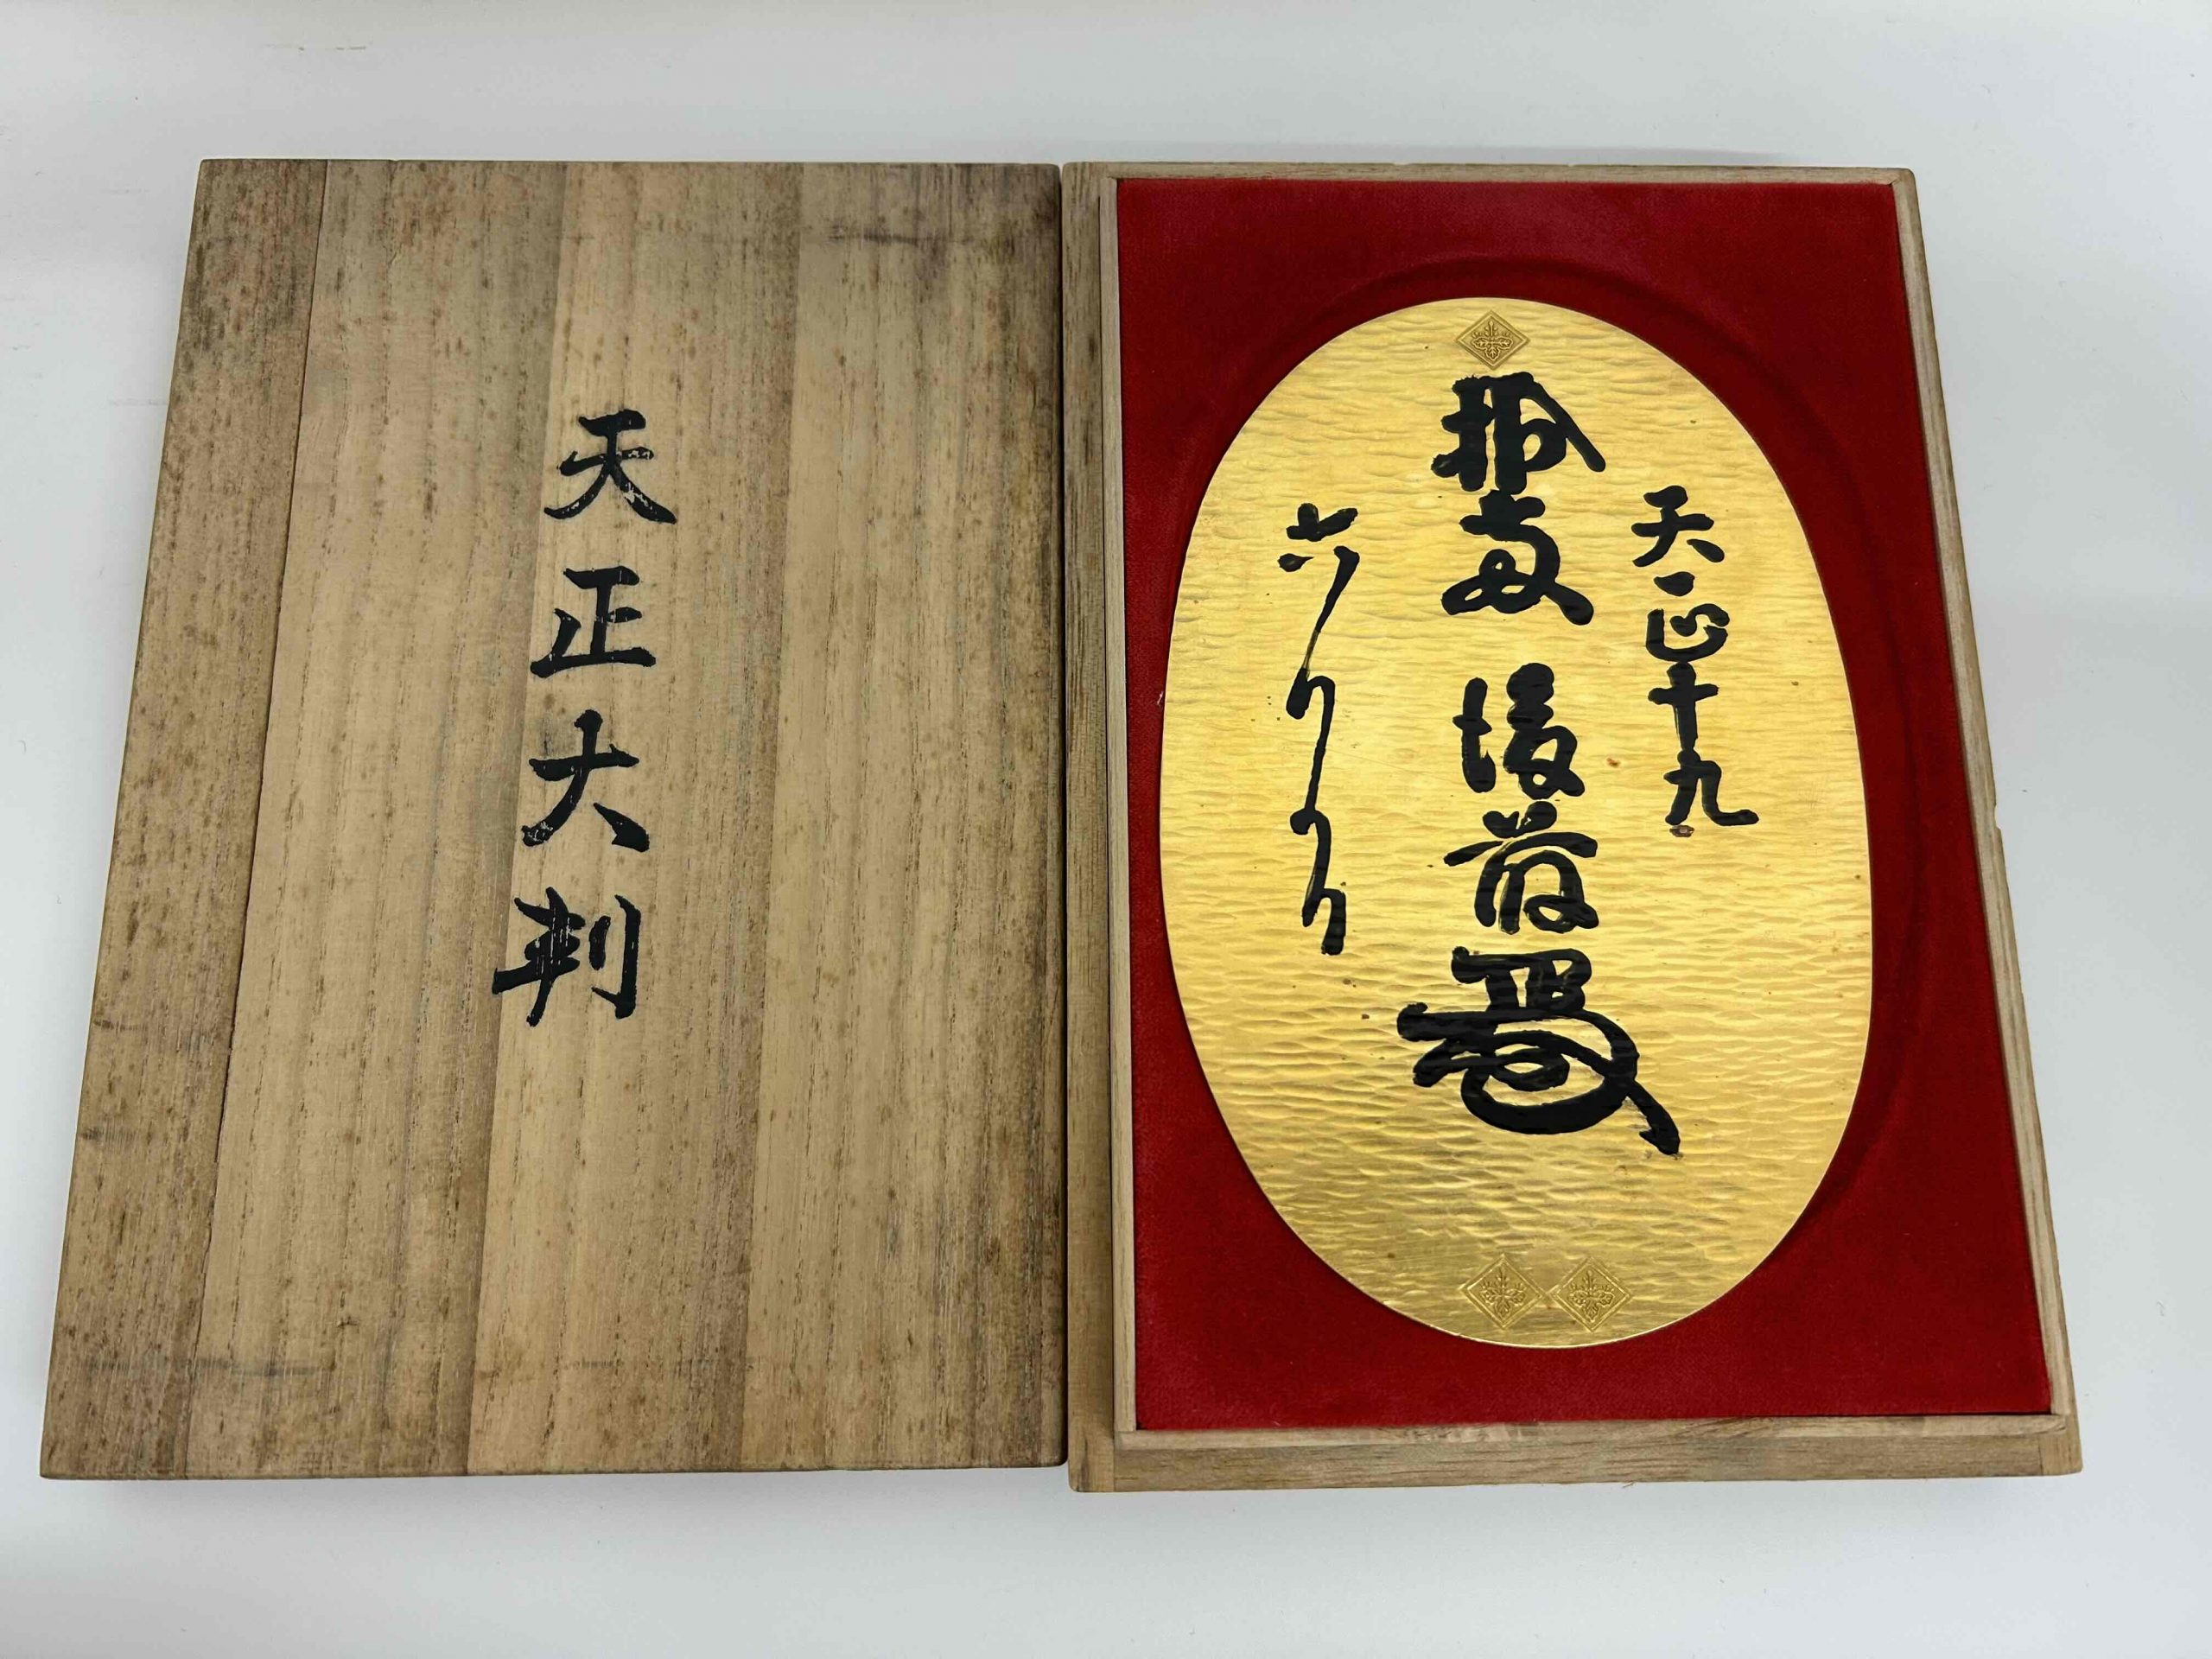 天正大判
天正十九
拾両 後藤